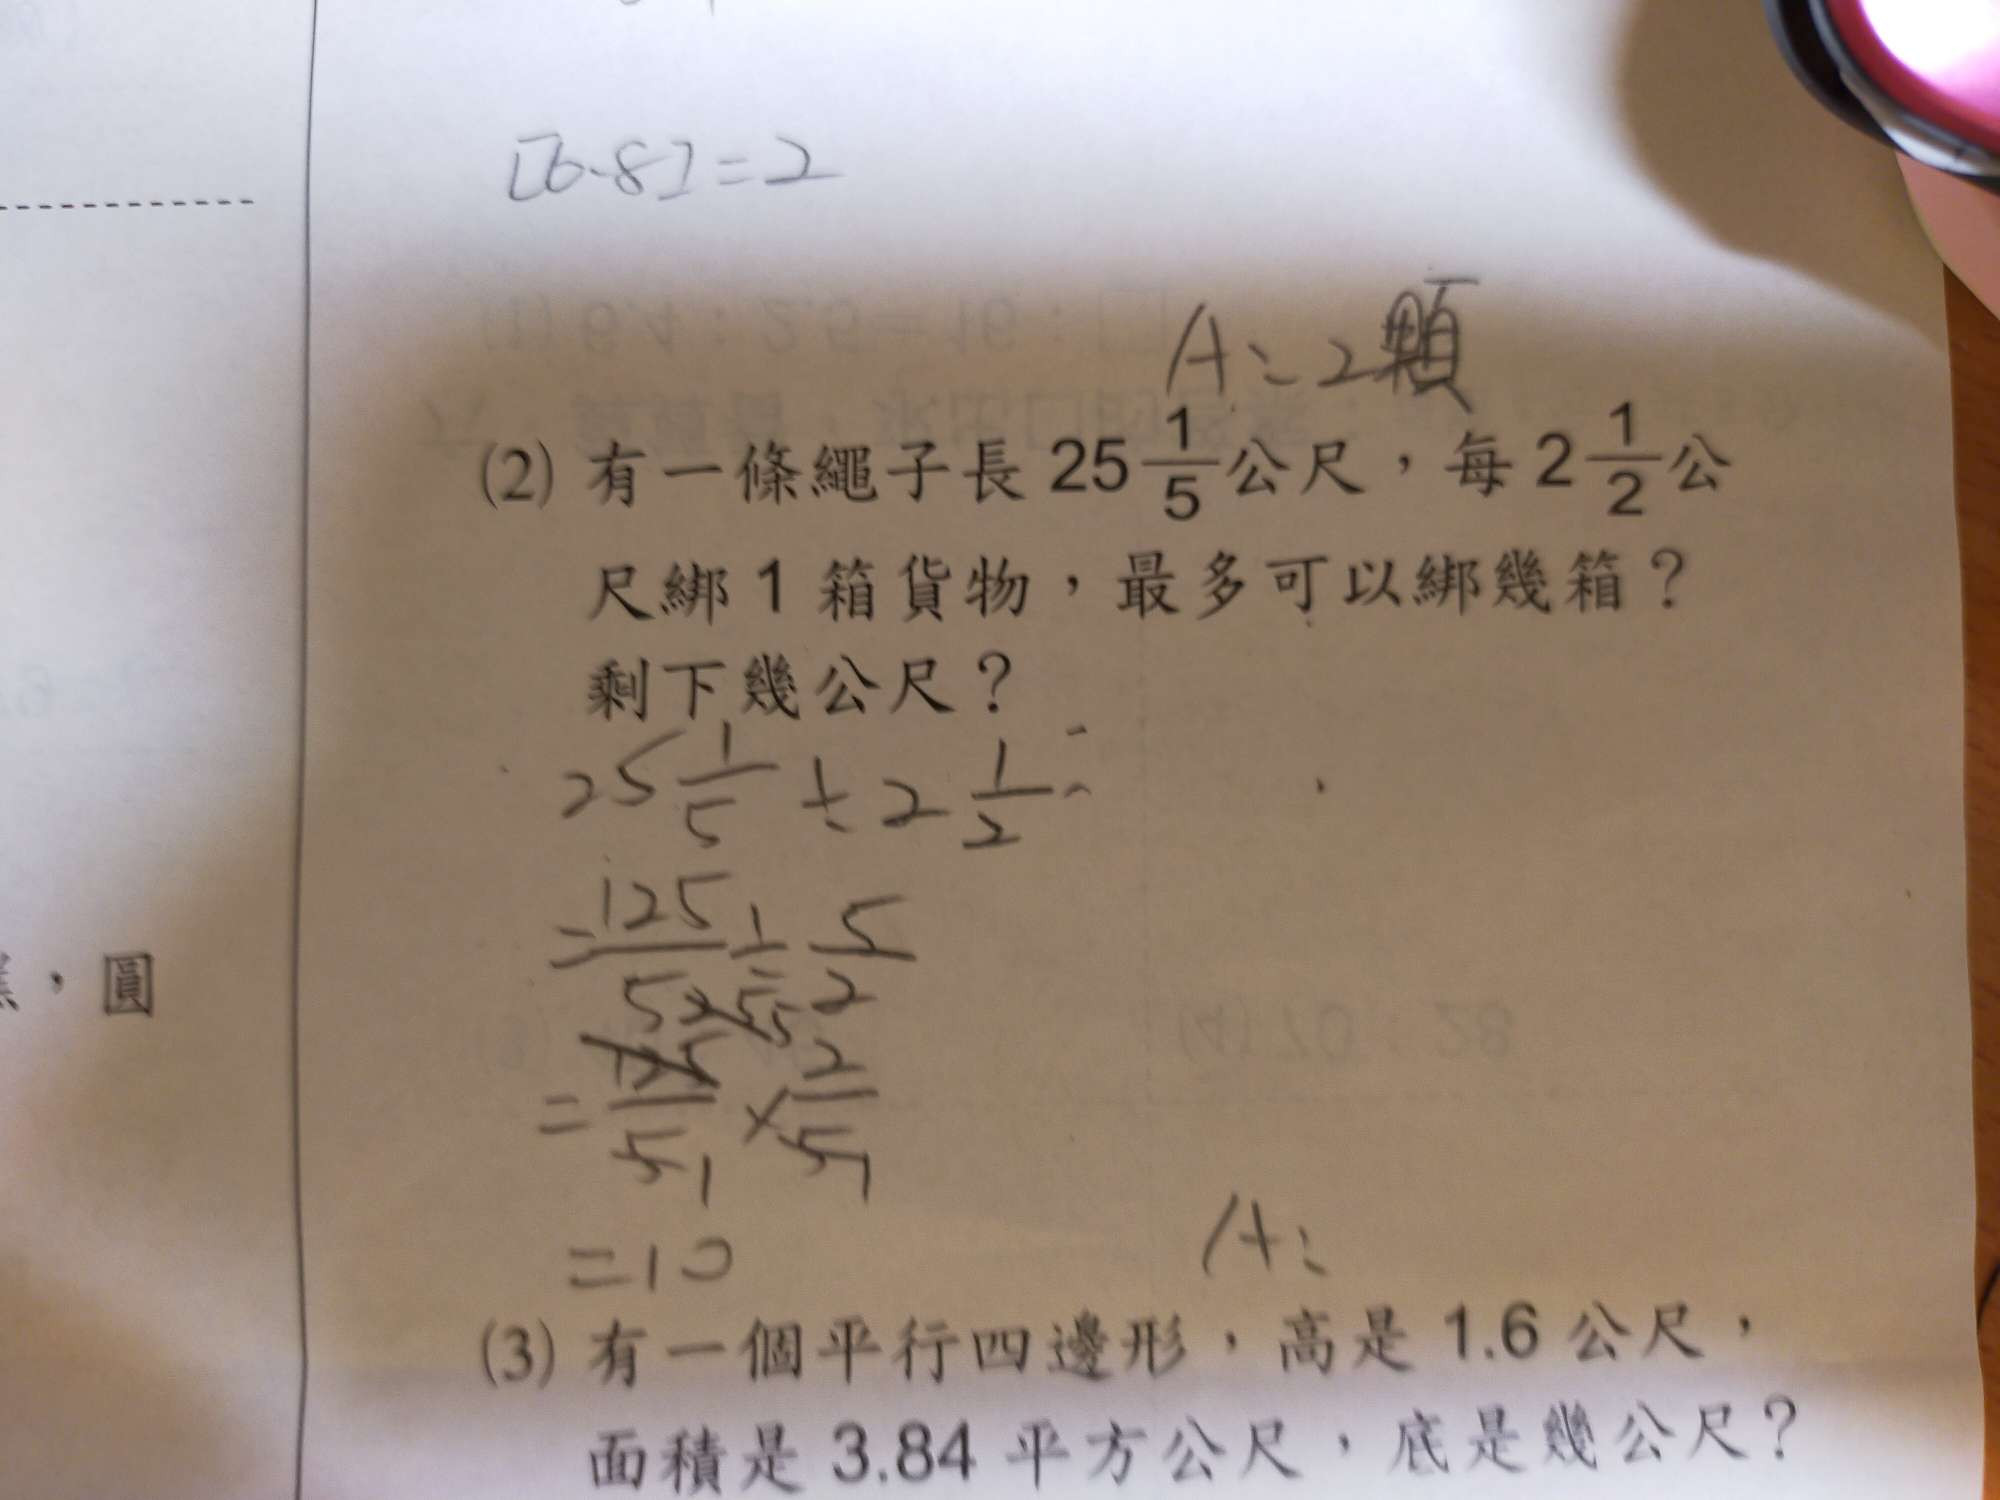 [6.8]=2
A:2顆
(2) 有一條繩子長 25 1/5 公尺，每 2 1/2 公
尺綁 1 箱貨物，最多可以綁幾箱？
剩下幾公尺？
25 1/5 ÷ 2 1/2 =
= 125/5 ÷ 5/2
= 125/5 × 2/5
=10
A:
(3) 有一個平行四邊形，高是 1.6 公尺，
面積是 3.84 平方公尺，底是幾公尺？
，圓